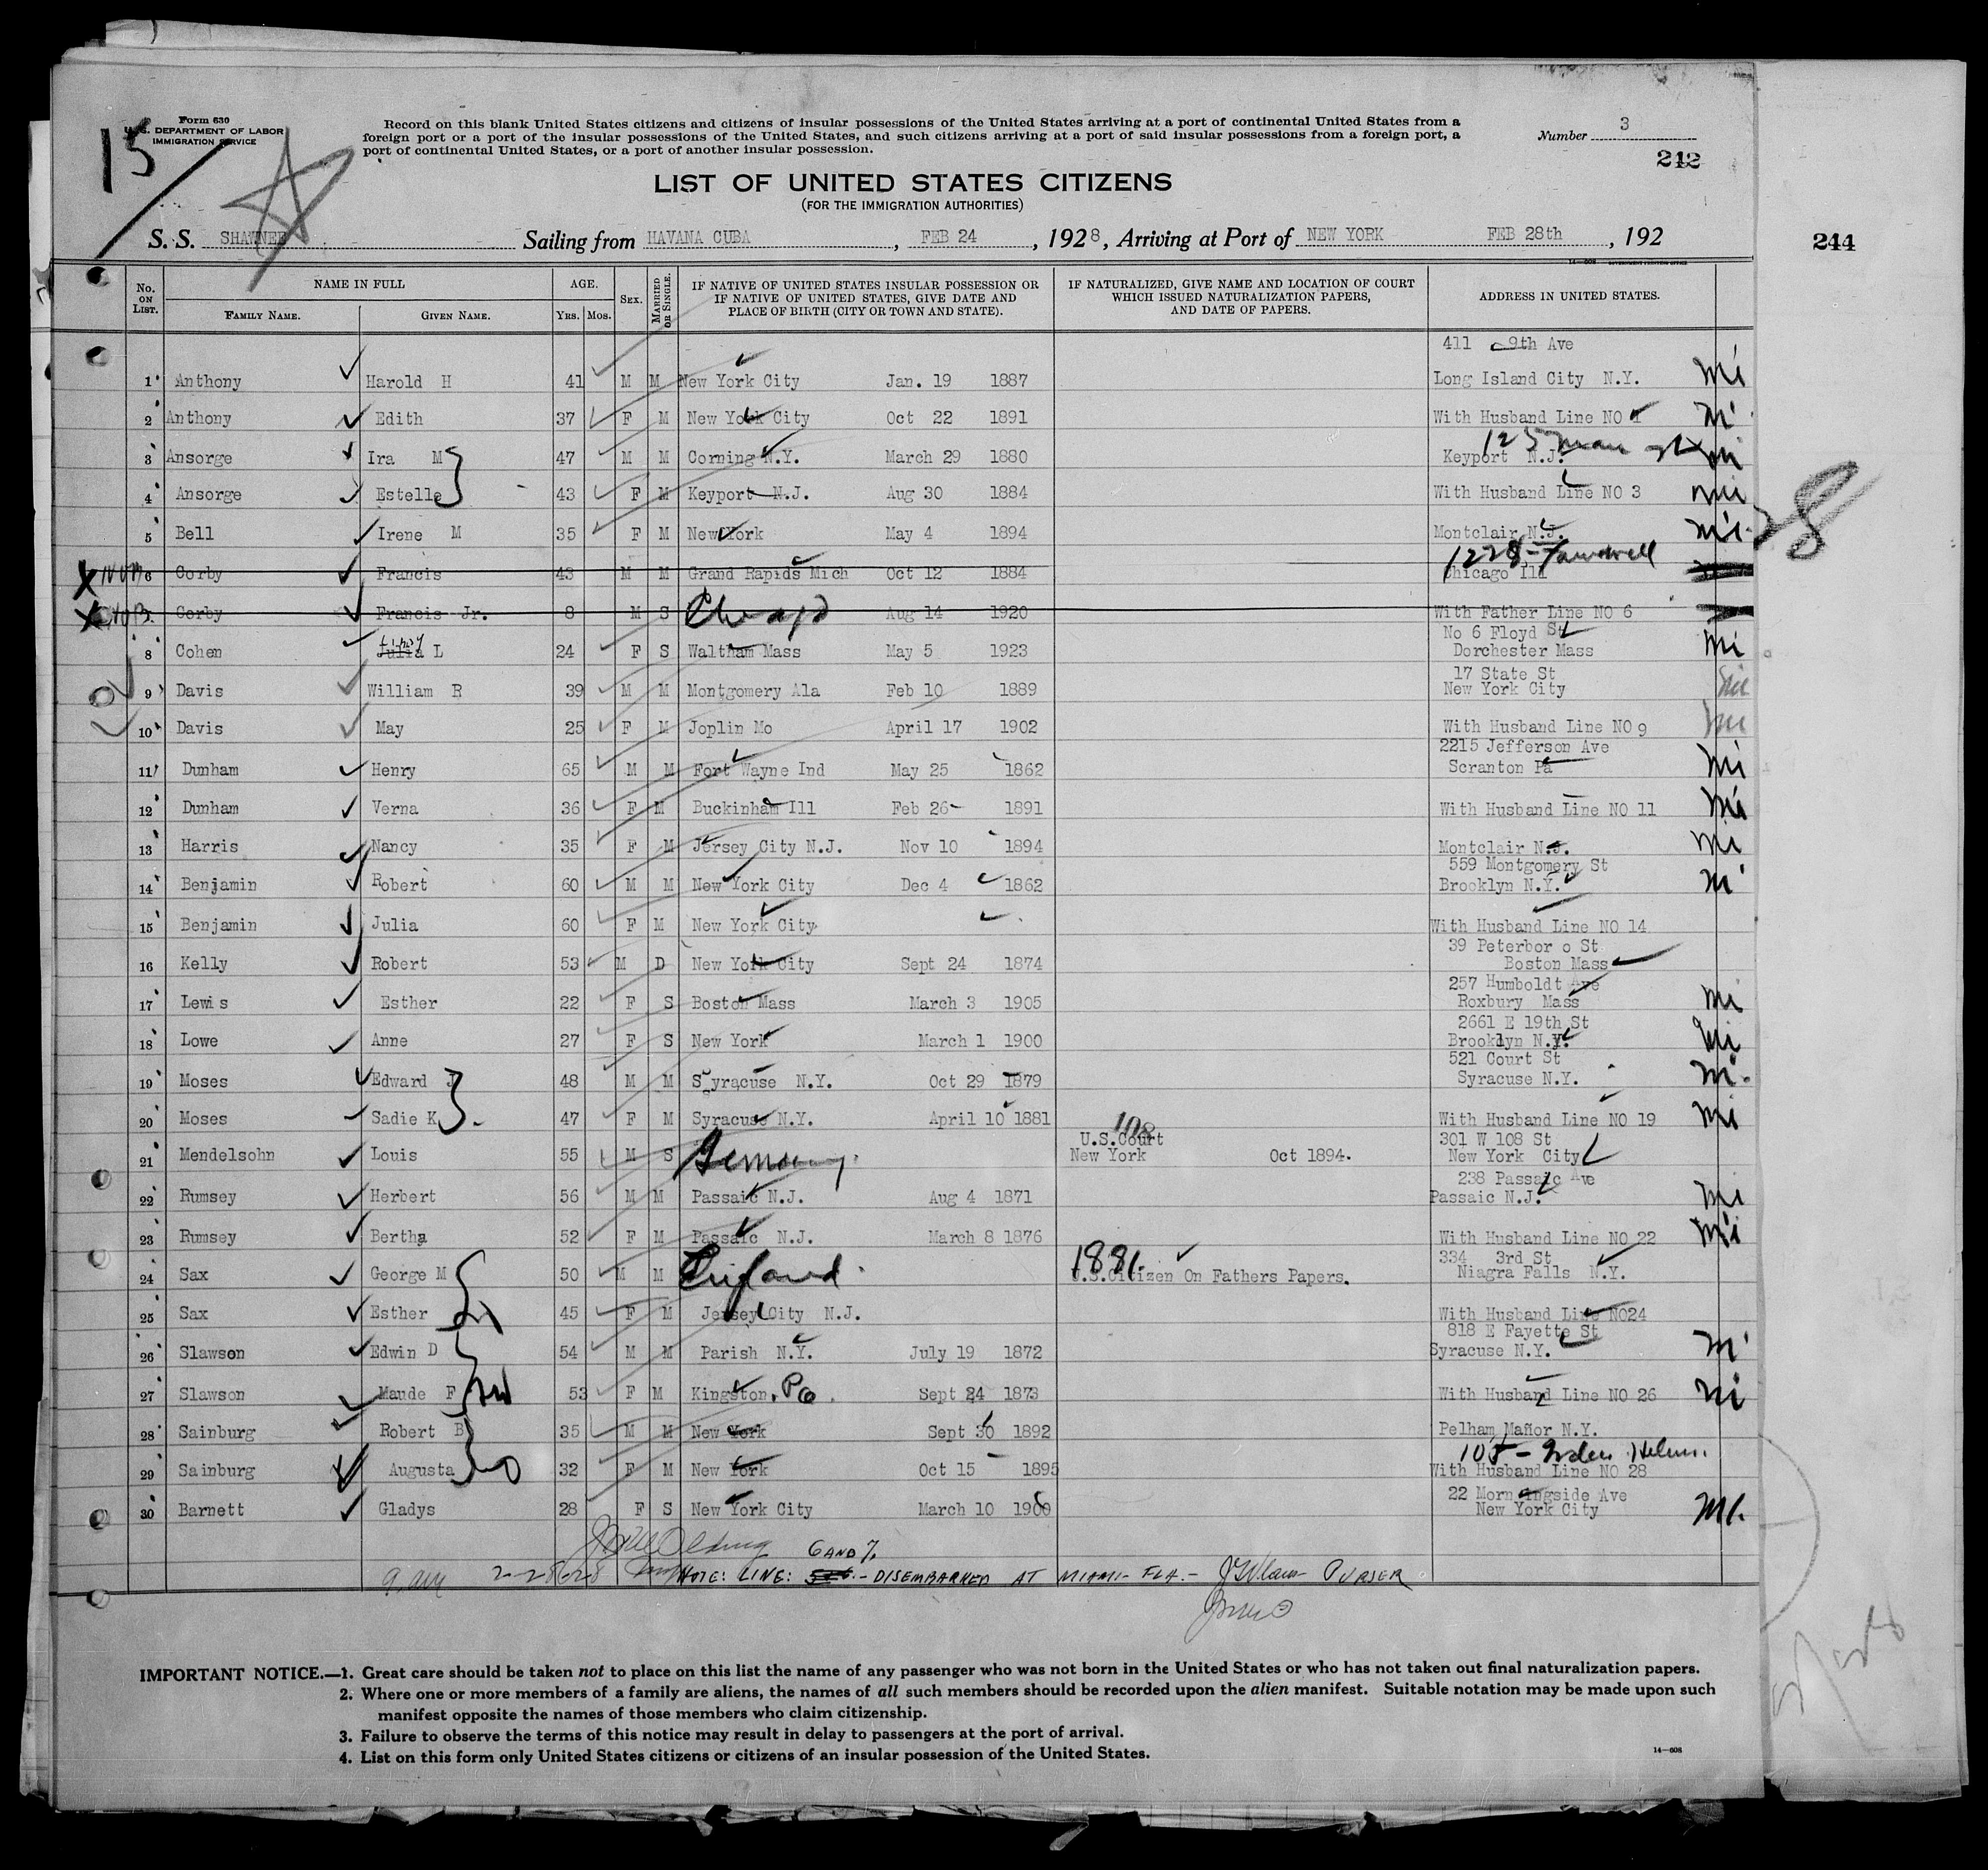 Form 630
U.S. DEPARTMENT OF LABOR
IMMIGRATION SERVICE
15
Record on this blank United States citizens and citizens of insular possessions of the United States arriving at a port of continental United States from a
foreign port or a port of the insular possessions of the United States, and such citizens arriving at a port of said insular possessions from a foreign port, a
port of continental United States, or a port of another insular possession.
Number 3
242
LIST OF UNITED STATES CITIZENS
(FOR THE IMMIGRATION AUTHORITIES)
S. S. SHAWNEE Sailing from HAVANA CUBA, FEB 24, 1928, Arriving at Port of NEW YORK FEB 28th, 192
244
14—608 GOVERNMENT PRINTING OFFICE
No. ON LIST. NAME IN FULL FAMILY NAME. GIVEN NAME. AGE. YRS. MOS. SEX. MARRIED OR SINGLE. IF NATIVE OF UNITED STATES INSULAR POSSESSION OR IF NATIVE OF UNITED STATES, GIVE DATE AND PLACE OF BIRTH (CITY OR TOWN AND STATE). IF NATURALIZED, GIVE NAME AND LOCATION OF COURT WHICH ISSUED NATURALIZATION PAPERS, AND DATE OF PAPERS. ADDRESS IN UNITED STATES.
411 9th Ave
1 Anthony Harold H 41 M M New York City Jan. 19 1887 Long Island City N.Y.
2 Anthony Edith 37 F M New York City Oct 22 1891 With Husband Line NO 1
3 Ansorge Ira M 47 M M Corning N.Y. March 29 1880 Keyport N.J.
4 Ansorge Estelle 43 F M Keyport N.J. Aug 30 1884 With Husband Line NO 3
5 Bell Irene M 35 F M New York May 4 1894 Montclair N.J.
28
6 Corby Francis 43 M M Grand Rapids Mich Oct 12 1884 Chicago Ill
7 Corby Francis Jr. 8 M S Chicago Aug 14 1920 With Father Line NO 6
No 6 Floyd St
8 Cohen Julia L 24 F S Waltham Mass May 5 1923 Dorchester Mass
17 State St
9 Davis William R 39 M M Montgomery Ala Feb 10 1889 New York City
10 Davis May 25 F M Joplin Mo April 17 1902 With Husband Line NO 9
2215 Jefferson Ave
11 Dunham Henry 65 M M Fort Wayne Ind May 25 1862 Scranton Pa
12 Dunham Verna 36 F M Buckinham Ill Feb 26 1891 With Husband Line NO 11
13 Harris Nancy 35 F M Jersey City N.J. Nov 10 1894 Montclair N.J.
559 Montgomery St
14 Benjamin Robert 60 M M New York City Dec 4 1862 Brooklyn N.Y.
15 Benjamin Julia 60 F M New York City With Husband Line NO 14
39 Peterbor o St
16 Kelly Robert 53 M D New York City Sept 24 1874 Boston Mass
257 Humboldt Ave
17 Lewis Esther 22 F S Boston Mass March 3 1905 Roxbury Mass
2661 E 19th St
18 Lowe Anne 27 F S New York March 1 1900 Brooklyn N.Y.
521 Court St
19 Moses Edward J 48 M M Syracuse N.Y. Oct 29 1879 Syracuse N.Y.
20 Moses Sadie K. 47 F M Syracuse N.Y. April 10 1881 With Husband Line NO 19
108
U.S.Court 301 W 108 St
21 Mendelsohn Louis 55 M S Germany. New York Oct 1894. New York City
238 Passaic Ave
22 Rumsey Herbert 56 M M Passaic N.J. Aug 4 1871 Passaic N.J.
23 Rumsey Bertha 52 F M Passaic N.J. March 8 1876 With Husband Line NO 22
1881. 334 3rd St
24 Sax George M 50 M M England. U.S.Citizen On Fathers Papers. Niagra Falls N.Y.
25 Sax Esther 45 F M Jersey City N.J. With Husband Line NO24
818 E Fayette St
26 Slawson Edwin D 54 M M Parish N.Y. July 19 1872 Syracuse N.Y.
27 Slawson Maude F 53 F M Kingston, Pa. Sept 24 1873 With Husband Line NO 26
28 Sainburg Robert B 35 M M New York Sept 30 1892 Pelham Manor N.Y.
29 Sainburg Augusta 32 F M New York Oct 15 1895 With Husband Line NO 28
22 Morningside Ave
30 Barnett Gladys 28 F S New York City March 10 1900 New York City
6 AND 7.
9 am 2-28-28 NOTE: LINE: - DISEMBARKED AT MIAMI- FLA.- PURSER
IMPORTANT NOTICE.—1. Great care should be taken not to place on this list the name of any passenger who was not born in the United States or who has not taken out final naturalization papers.
2. Where one or more members of a family are aliens, the names of all such members should be recorded upon the alien manifest. Suitable notation may be made upon such
manifest opposite the names of those members who claim citizenship.
3. Failure to observe the terms of this notice may result in delay to passengers at the port of arrival.
4. List on this form only United States citizens or citizens of an insular possession of the United States.
14—608